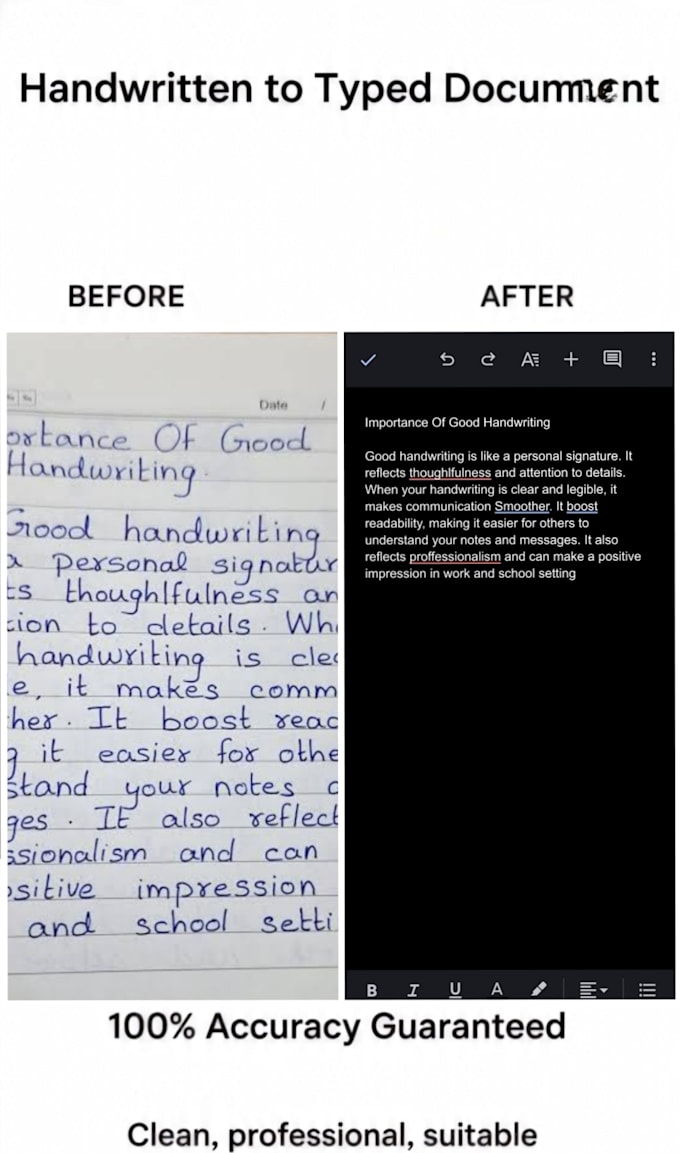 Handwritten to Typed Document
BEFORE
AFTER
Date /
ortance Of Good
Handwriting.
Good handwriting
a personal signatur
ts thoughlfulness an
tion to details. Wh
handwriting is clea
e, it makes comm
her. It boost read
g it easier for othe
stand your notes a
ges. It also reflect
ssionalism and can
ositive impression
and school setti
Importance Of Good Handwriting
Good handwriting is like a personal signature. It
reflects thoughlfulness and attention to details.
When your handwriting is clear and legible, it
makes communication Smoother. It boost
readability, making it easier for others to
understand your notes and messages. It also
reflects proffessionalism and can make a positive
impression in work and school setting
B I U A
100% Accuracy Guaranteed
Clean, professional, suitable